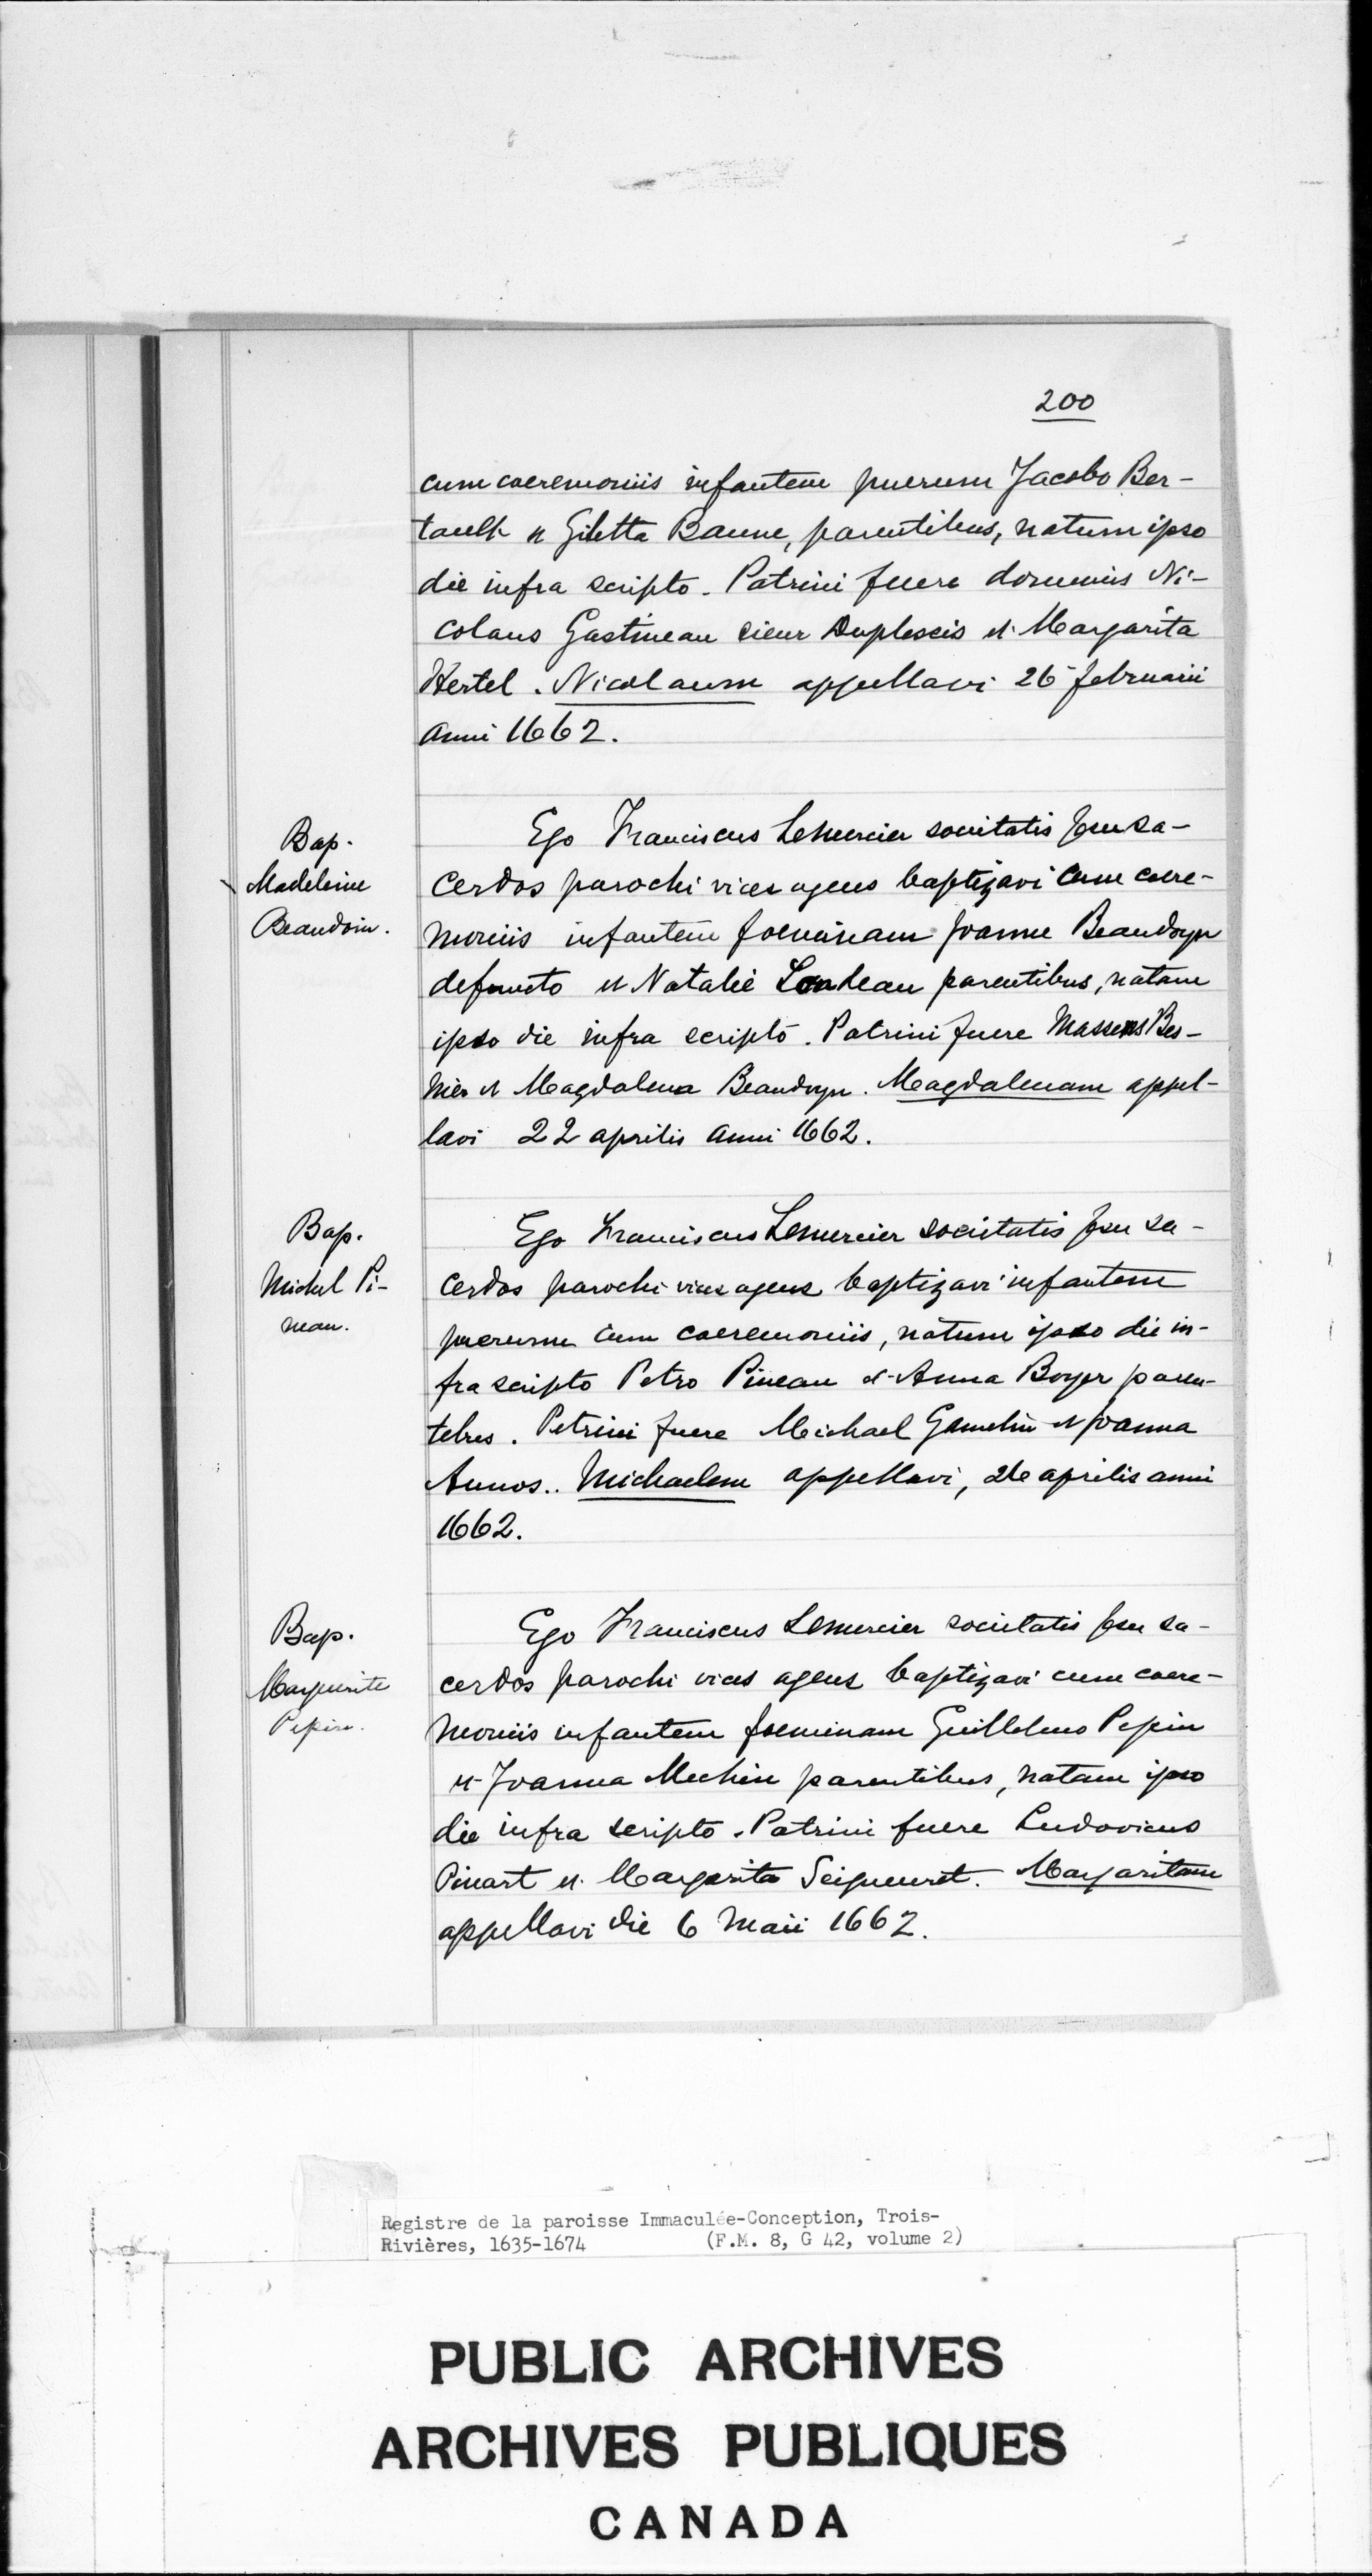 200
cum caeremoniis infantem puerum Jacobo Ber-
tault et Giletta Banne, parentibus, natum ipso
die infra scripto. Patrini fuere dominus Ni-
colaus Gastineau sieur Duplessis et Margarita
Hertel. Nicolaum appellavi 26 februarii
anni 1662.
Bap.
Madeleine
Beaudoin.
Ego Franciscus Lemercier societatis Jesu sa-
cerdos parochi vices agens baptizavi cum caere-
moniis infantem foeminam Joanne Beaudoyn
defuncto et Natalie Landeau parentibus, natam
ipso die infra scripto. Patrini fuere Massens Bes-
nier et Magdalena Beaudoyn. Magdalenam appel-
lavi 22 aprilis anni 1662.
Bap.
Michel Pi-
neau.
Ego Franciscus Lemercier societatis Jesu sa-
cerdos parochi vices agens baptizavi infantem
puerum cum caeremoniis, natum ipso die in-
fra scripto Petro Pineau et Anna Boyer paren-
tebus. Petrini fuere Michael Gamelin et Joanna
Aunos.. Michaelem appellavi, aprilis anni
1662.
Bap.
Marguerite
Pepin.
Ego Franciscus Lemercier societatis Jesu sa-
cerdos parochi vices agens baptizavi cum caere-
moniis infantem foeminam Guillelmo Pepin
et Joanna Mechin parentibus, natam ipso
die infra scripto. Patrini fuere Ludovicus
Pinart et Margarita Seigneuret. Margaritam
appellavi die 6 Maii 1662.
Registre de la paroisse Immaculée-Conception, Trois-
Rivières, 1635-1674 (F.M. 8, G 42, volume 2)
PUBLIC ARCHIVES
ARCHIVES PUBLIQUES
CANADA